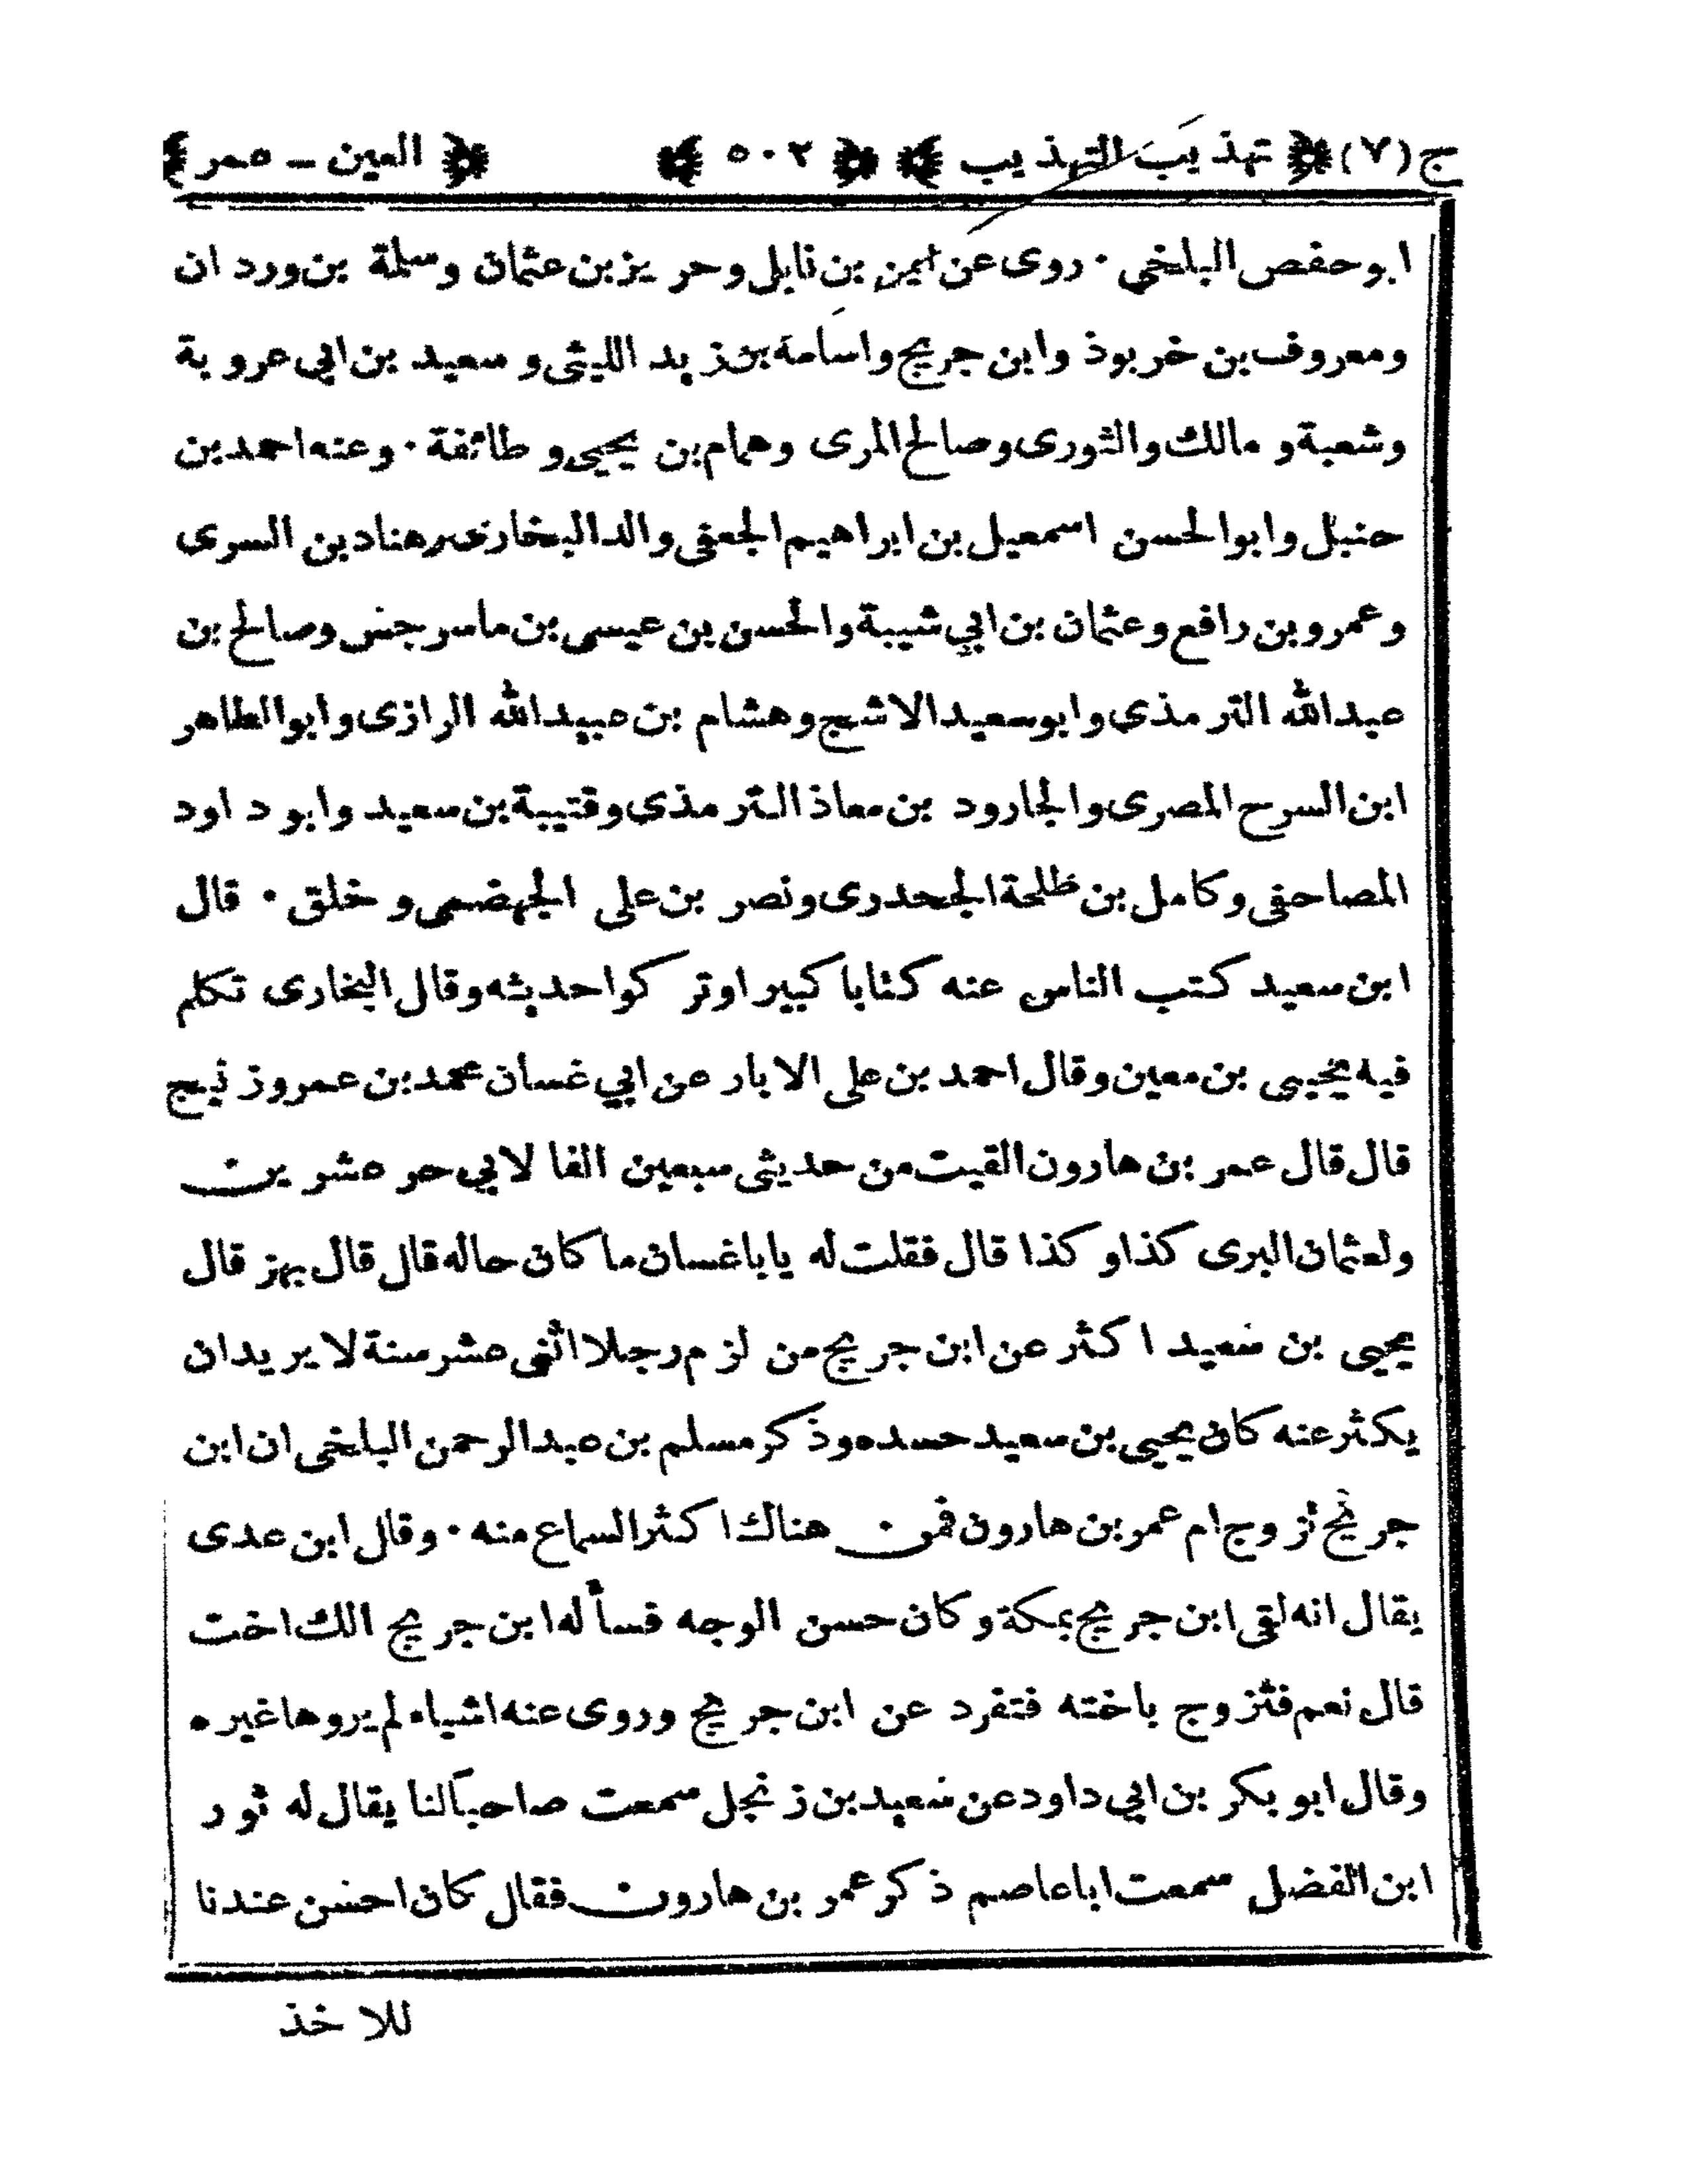 ج (٧) ﴿ تهذيب التهذيب ﴾ ﴿ ٥٠٢ ﴾ ﴿ العين - عمر ﴾
ابو حفص البلخي . روى عن ايمن بن نابل وحريز بن عثمان وسلمة بن وردان
ومعروف بن خربوذ وابن جريج واسامة بن زيد الليثى وسعيد بن ابي عروبة
وشعبة و مالك والثورى وصالح المرى وهمام بن يحيى و طائفة . وعنه احمد بن
حنبل وابو الحسن اسمعيل بن ابراهيم الجعفى والد البخارى وهناد بن السرى
وعمرو بن رافع وعثمان بن ابي شيبة والحسن بن عيسى بن ماسرجس وصالح بن
عبدالله الترمذي وابو سعيد الاشج وهشام بن عبيدالله الرازى وابو الطاهر
ابن السرح المصرى والجارود بن معاذ الترمذي وقتيبة بن سعيد وابو داود
المصاحفى وكامل بن طلحة الجحدرى ونصر بن على الجهضمى و خلق . قال
ابن سعيد كتب الناس عنه كتابا كبيرا وتركوا حديثه وقال البخارى تكلم
فيه يحيى بن معين وقال احمد بن على الابار عن ابي غسان محمد بن عمرو زنيج
قال قال عمر بن هارون القيت من حديثى سبعين الفا لابي حر عشرين
ولعثمان البرى كذا وكذا قال فقلت له يا باغسان ما كان حاله قال قال بهز قال
يحيى بن سعيد اكثر عن ابن جريج من لزم رجلا اثنى عشر سنة لا يريد ان
يكثر عنه كان يحيى بن سعيد حسده وذكر مسلم بن عبدالرحمن البلخى ان ابن
جريج تزوج ام عمر بن هارون فمن هناك اكثر السماع منه . وقال ابن عدى
يقال انه لقى ابن جريج بمكة وكان حسن الوجه فسأله ابن جريج الك اخت
قال نعم فتزوج باخته فتفرد عن ابن جريج وروى عنه اشياء لم يروها غيره
وقال ابو بكر بن ابي داود عن سعيد بن زنجل سمعت صاحبا لنا يقال له ثور
ابن الفضل سمعت اباعاصم ذكر عمر بن هارون فقال كان احسن عندنا
للاخذ